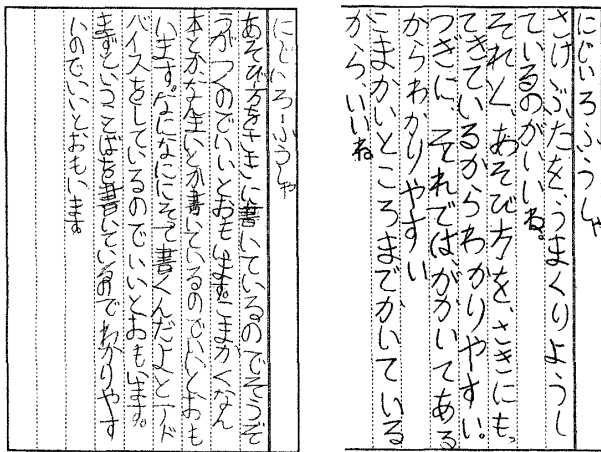 にじいろふうしゃ
さけぶたをうまくりようし
ているのがいいね。
それと、あそび方を、さきにもっ
てきているからわかりやすい。
つぎに、それでは、がかいてある
からわかりやすい
こまかいところまでかいている
から、いいね
にじいろふうしゃ
あそび方をさきに書いているのでそうぞ
うがつくのでいいとおもいます。こまかくなん
本とかな生いとか書いているのでいいとおも
います。なになににそって書くんだよとアド
バイスをしているのでいいとおもいます。
まずということばを書いているのでわかりやす
いのでいいとおもいます。